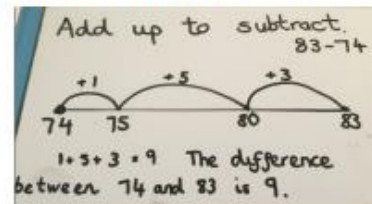 Add up to subtract.
83-74
+1 +5 +3
74 75 80 83
1+5+3=9 The difference
between 74 and 83 is 9.